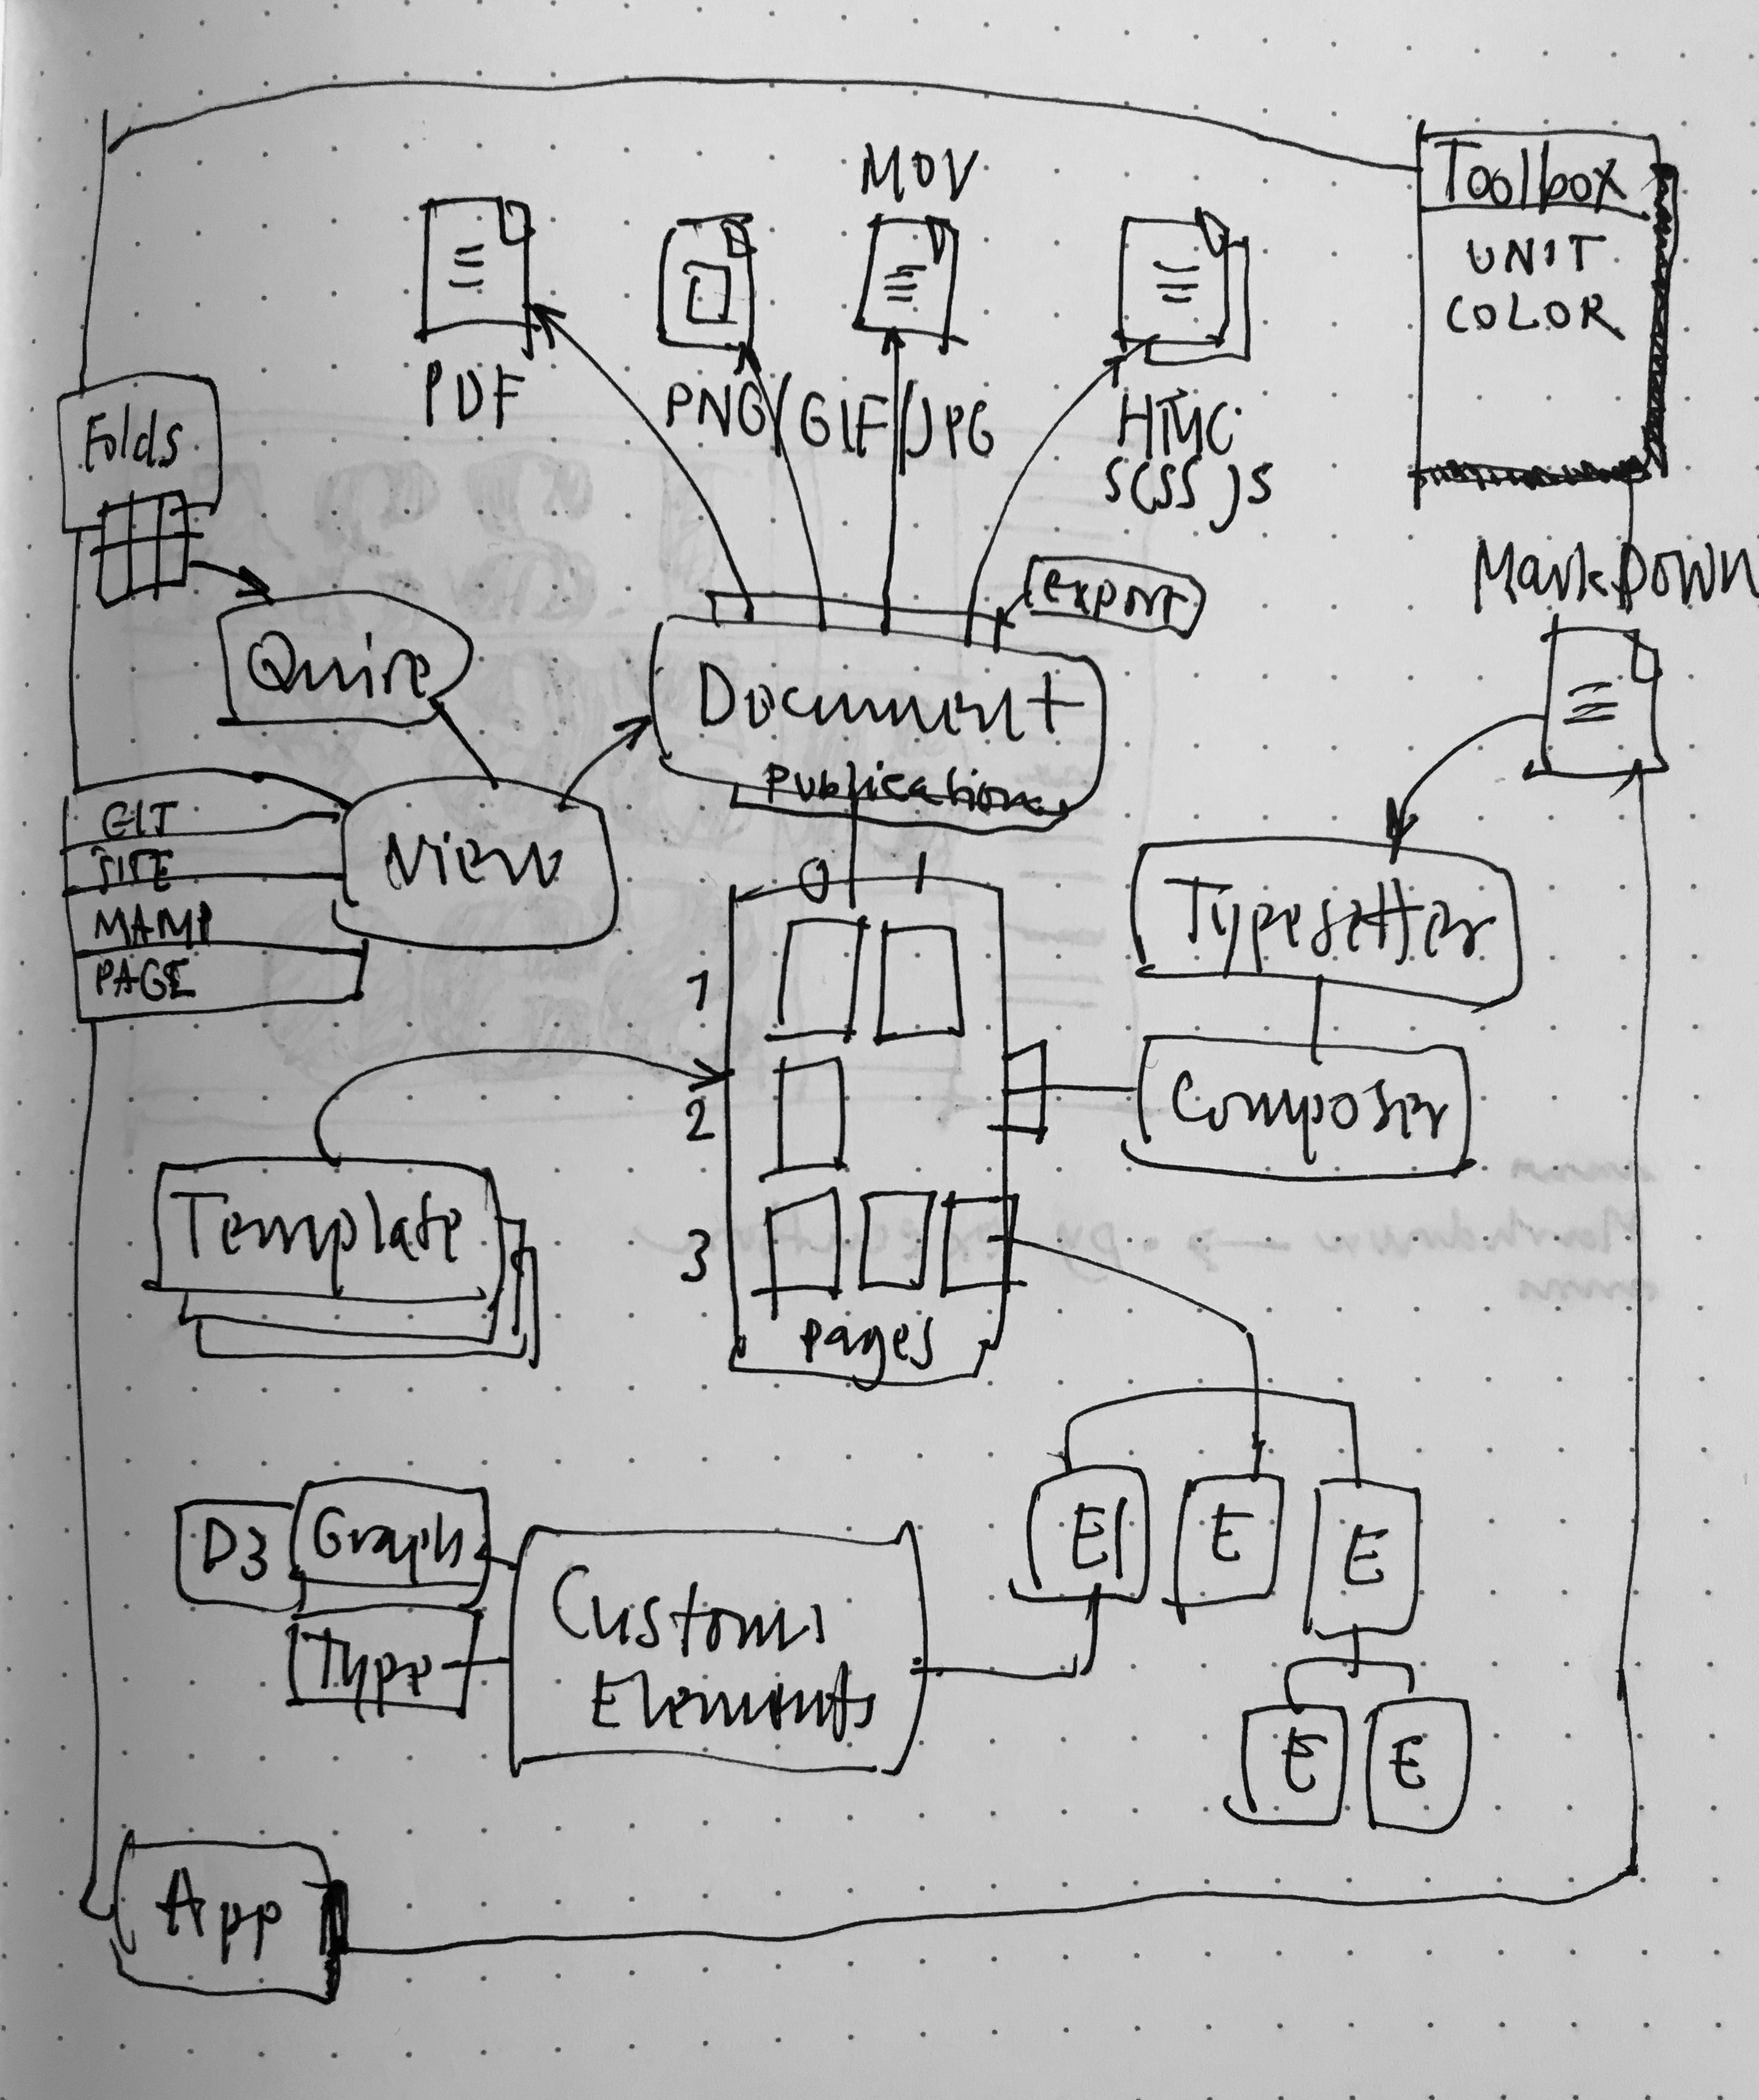 MOV
Toolbox
UNIT
COLOR
PDF
PNG/GIF/JPG
HTML
SCSS JS
Folds
export
MarkDown
Quire
Document
Publication
GIT
SITE
MAMP
PAGE
View
0 1
Typesetter
1
2
Composer
Template
3
pages
D3
Graph
Type
Custom
Elements
El
E
E
E
E
App